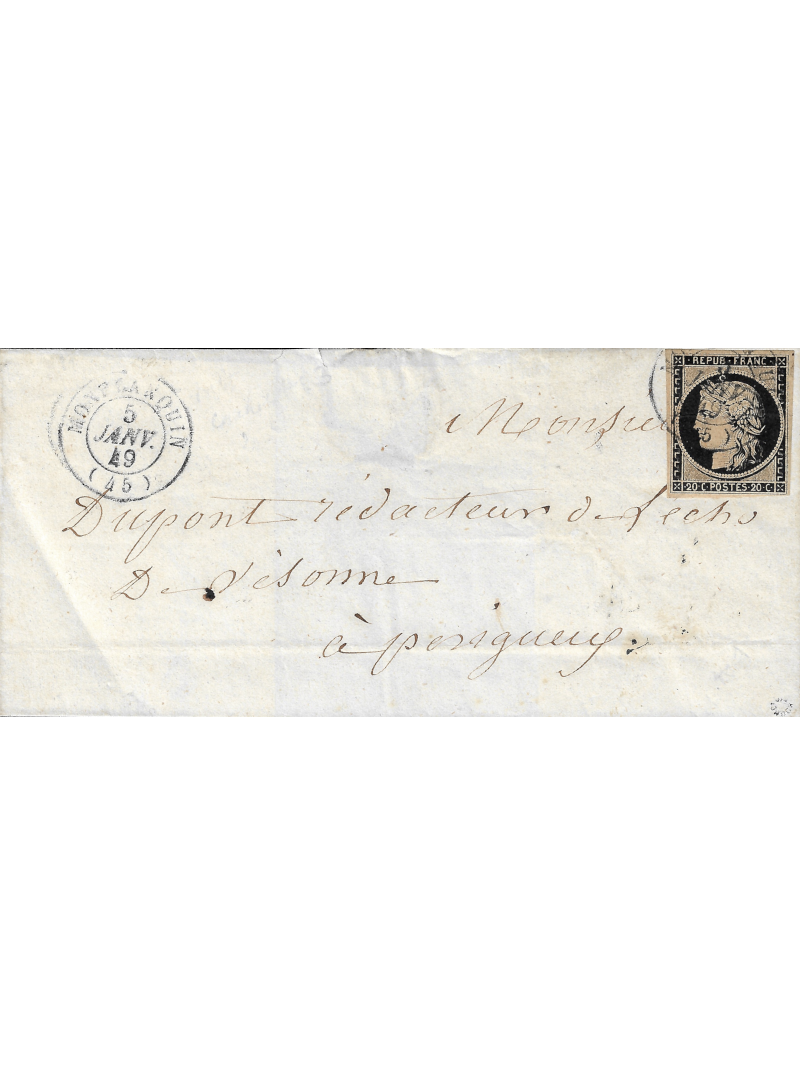 MONFLANQUIN
5
JANV.
49
(45)
REPUB FRANC
20 C POSTES 20 C
Monsieur
Dupont rédacteur de l'echo
De Vésonne
à perigueux.